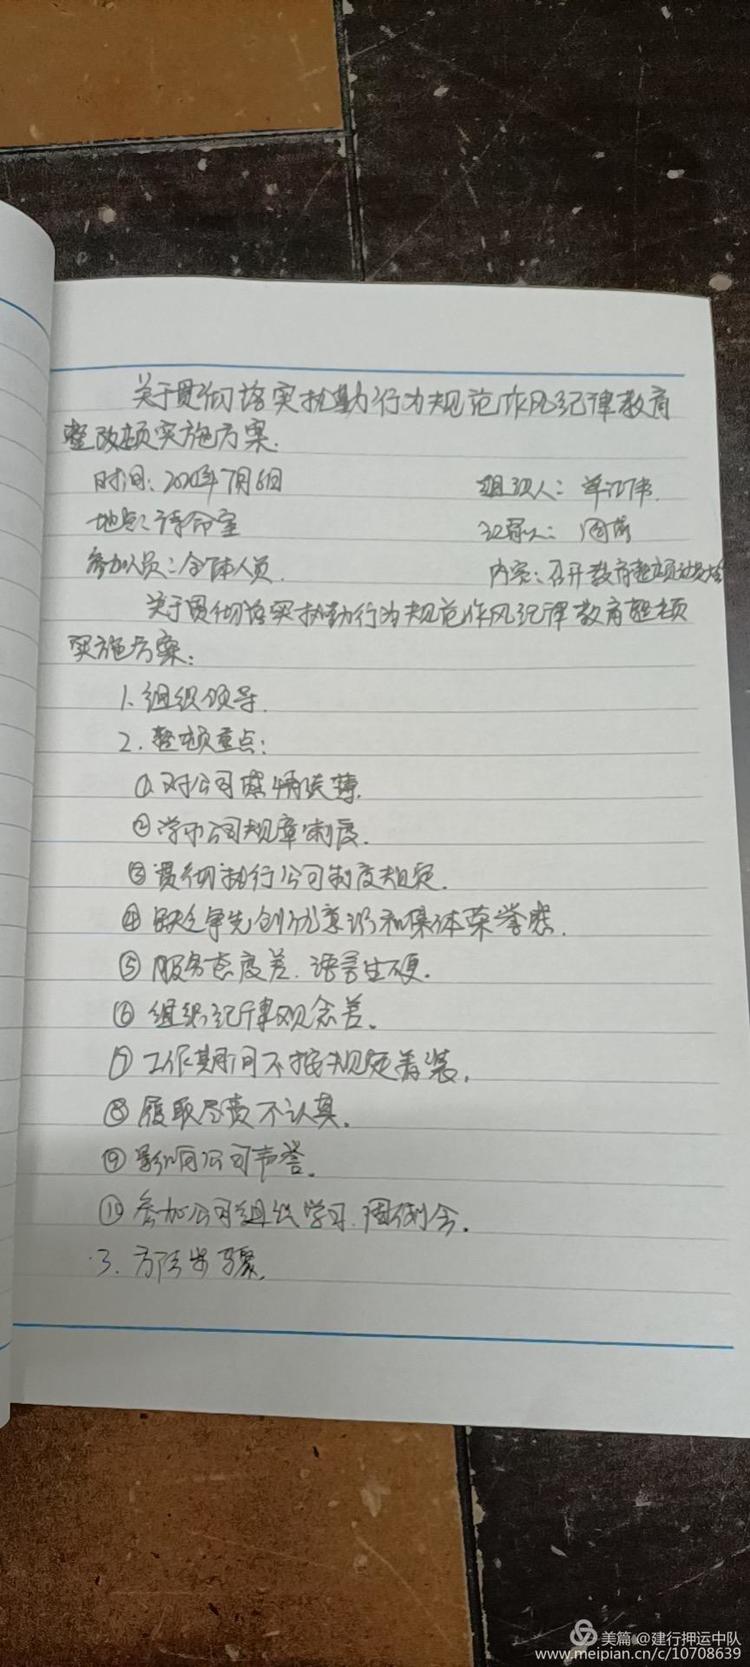 关于贯彻落实执勤行为规范作风纪律教育
整改顿实施方案.
时间：2020年7月6日 组织人：单江伟.
地点：待命室 记录人：周
参加人员：全体人员. 内容：召开教育整顿
关于贯彻落实执勤行为规范作风纪律教育整顿
实施方案：
1.组织领导.
2.整顿重点：
①对公司感情淡薄.
②学习公司规章制度.
③贯彻执行公司制度规定.
④缺乏争先创优意识和集体荣誉感.
⑤服务态度差.语言生硬.
⑥组织纪律观念差.
⑦工作期间不按规定着装.
⑧履职尽责不认真.
⑨影响公司声誉.
⑩参加公司组织学习.周例会.
3.方法步骤.
美篇 @建行押运中队
www.meipian.cn/c/10708639